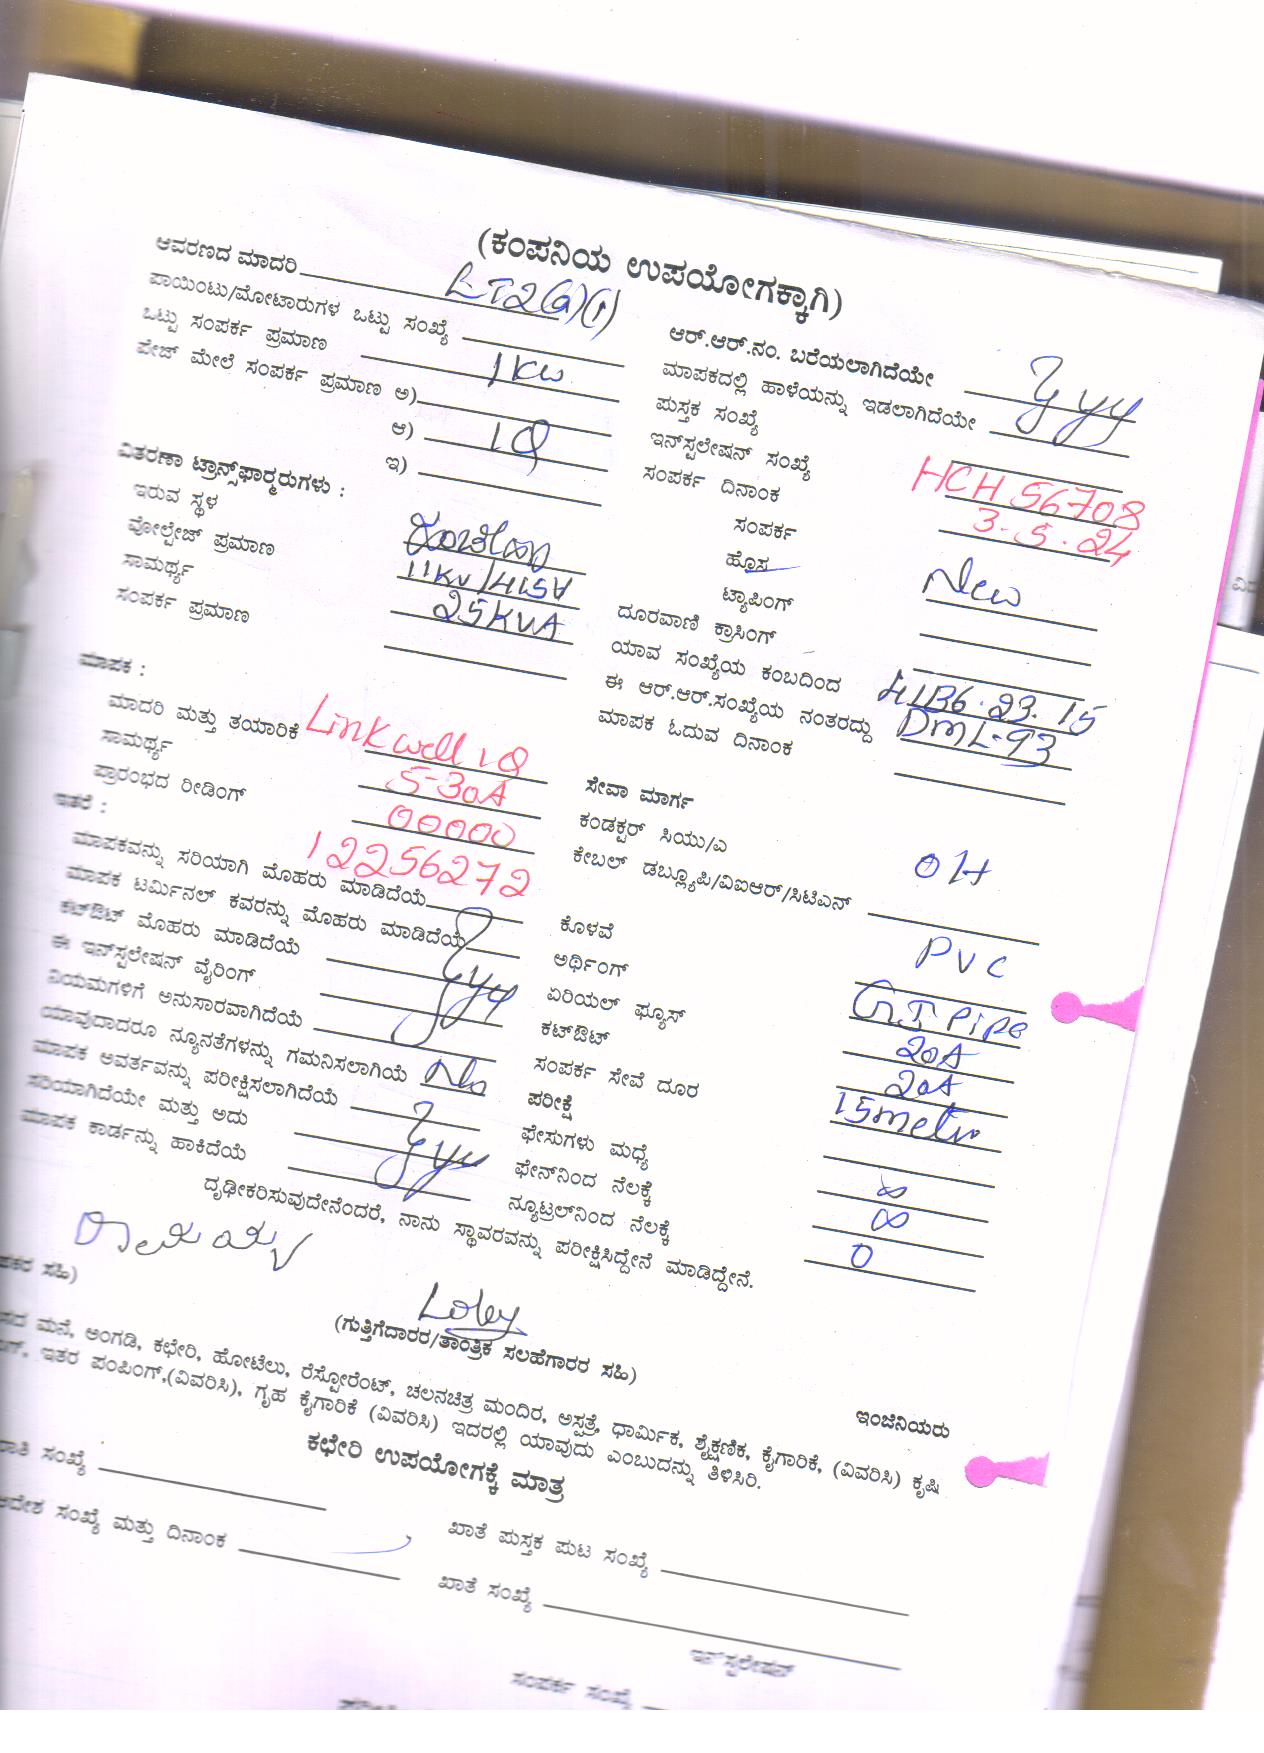 (ಕಂಪನಿಯ ಉಪಯೋಗಕ್ಕಾಗಿ)
ಆವರಣದ ಮಾದರಿ LT2(a)(1)
ಪಾಯಿಂಟು/ಮೋಟಾರುಗಳ ಒಟ್ಟು ಸಂಖ್ಯೆ
ಒಟ್ಟು ಸಂಪರ್ಕ ಪ್ರಮಾಣ 1Kw
ಪೇಜ್ ಮೇಲೆ ಸಂಪರ್ಕ ಪ್ರಮಾಣ ಅ)
ಆ) 1Q
ಇ)
ವಿತರಣಾ ಟ್ರಾನ್ಸ್‌ಫಾರ್‍ಮರುಗಳು :
ಇರುವ ಸ್ಥಳ
ವೋಲ್ಟೇಜ್ ಪ್ರಮಾಣ 11Kv/415V
ಸಾಮರ್ಥ್ಯ 25KVA
ಸಂಪರ್ಕ ಪ್ರಮಾಣ
ಮಾಪಕ :
ಮಾದರಿ ಮತ್ತು ತಯಾರಿಕೆ Linkwell 1Q
ಸಾಮರ್ಥ್ಯ 5-30A
ಪ್ರಾರಂಭದ ರೀಡಿಂಗ್ 00000
ಇತರೆ : 12256272
ಮಾಪಕವನ್ನು ಸರಿಯಾಗಿ ಮೊಹರು ಮಾಡಿದೆಯೆ
ಮಾಪಕ ಟರ್ಮಿನಲ್ ಕವರನ್ನು ಮೊಹರು ಮಾಡಿದೆಯೆ
ಕಟ್‌ಔಟ್ ಮೊಹರು ಮಾಡಿದೆಯೆ
ಈ ಇನ್‌ಸ್ಟಲೇಷನ್ ವೈರಿಂಗ್
ನಿಯಮಗಳಿಗೆ ಅನುಸಾರವಾಗಿದೆಯೆ
ಯಾವುದಾದರೂ ನ್ಯೂನತೆಗಳನ್ನು ಗಮನಿಸಲಾಗಿಯೆ No
ಮಾಪಕ ಅವರ್ತವನ್ನು ಪರೀಕ್ಷಿಸಲಾಗಿದೆಯೆ
ಸರಿಯಾಗಿದೆಯೇ ಮತ್ತು ಅದು
ಮಾಪಕ ಕಾರ್ಡನ್ನು ಹಾಕಿದೆಯೆ
ಆರ್.ಆರ್.ನಂ. ಬರೆಯಲಾಗಿದೆಯೇ
ಮಾಪಕದಲ್ಲಿ ಹಾಳೆಯನ್ನು ಇಡಲಾಗಿದೆಯೇ
ಪುಸ್ತಕ ಸಂಖ್ಯೆ
ಇನ್‌ಸ್ಟಲೇಷನ್ ಸಂಖ್ಯೆ HCH 56708
ಸಂಪರ್ಕ ದಿನಾಂಕ 3-5.24
ಸಂಪರ್ಕ
ಹೊಸ New
ಟ್ಯಾಪಿಂಗ್
ದೂರವಾಣಿ ಕ್ರಾಸಿಂಗ್
ಯಾವ ಸಂಖ್ಯೆಯ ಕಂಬದಿಂದ
ಈ ಆರ್.ಆರ್.ಸಂಖ್ಯೆಯ ನಂತರದ್ದು DML-93
ಮಾಪಕ ಓದುವ ದಿನಾಂಕ
ಸೇವಾ ಮಾರ್ಗ
ಕಂಡಕ್ಟರ್ ಸಿಯು/ಎ OH
ಕೇಬಲ್ ಡಬ್ಲ್ಯೂಪಿ/ವಿಐಆರ್/ಸಿಟಿಎನ್
ಕೊಳವೆ PVC
ಅರ್ಥಿಂಗ್ GI Pipe
ಏರಿಯಲ್ ಫ್ಯೂಸ್ 20A
ಕಟ್‌ಔಟ್ 20A
ಸಂಪರ್ಕ ಸೇವೆ ದೂರ 15metr
ಪರೀಕ್ಷೆ
ಫೇಸುಗಳು ಮಧ್ಯೆ ∞
ಫೇನ್‌ನಿಂದ ನೆಲಕ್ಕೆ ∞
ನ್ಯೂಟ್ರಲ್‌ನಿಂದ ನೆಲಕ್ಕೆ 0
ದೃಢೀಕರಿಸುವುದೇನೆಂದರೆ, ನಾನು ಸ್ಥಾವರವನ್ನು ಪರೀಕ್ಷಿಸಿದ್ದೇನೆ ಮಾಡಿದ್ದೇನೆ.
ಸಹಿ)
(ಗುತ್ತಿಗೆದಾರರ/ತಾಂತ್ರಿಕ ಸಲಹೆಗಾರರ ಸಹಿ)
ಇಂಜಿನಿಯರು
ಮನೆ, ಅಂಗಡಿ, ಕಛೇರಿ, ಹೋಟೆಲು, ರೆಸ್ಟೋರೆಂಟ್, ಚಲನಚಿತ್ರ ಮಂದಿರ, ಅಸ್ಪತ್ರೆ, ಧಾರ್ಮಿಕ, ಶೈಕ್ಷಣಿಕ, ಕೈಗಾರಿಕೆ, (ವಿವರಿಸಿ) ಕೃಷಿ
ಇತರ ಪಂಪಿಂಗ್,(ವಿವರಿಸಿ), ಗೃಹ ಕೈಗಾರಿಕೆ (ವಿವರಿಸಿ) ಇದರಲ್ಲಿ ಯಾವುದು ಎಂಬುದನ್ನು ತಿಳಿಸಿರಿ.
ಕಛೇರಿ ಉಪಯೋಗಕ್ಕೆ ಮಾತ್ರ
ಸಂಖ್ಯೆ
ಖಾತೆ ಪುಸ್ತಕ ಪುಟ ಸಂಖ್ಯೆ
ಆದೇಶ ಸಂಖ್ಯೆ ಮತ್ತು ದಿನಾಂಕ
ಖಾತೆ ಸಂಖ್ಯೆ
ಇನ್‌ಸ್ಟಲೇಷನ್
ಸಂಪರ್ಕ ಸಂಖ್ಯೆ